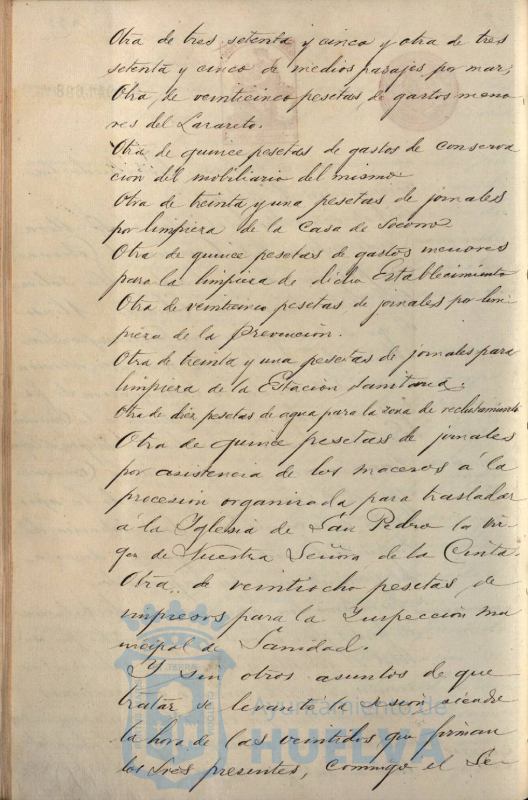 Otra de tres setenta y cinco y otra de tres
setenta y cinco de medios pasajes por mar;
Otra de veinticinco pesetas de gastos meno-
res del Lazareto.
Otra de quince pesetas de gastos de conserva
cion del mobiliario del mismo
Otra de treinta y una pesetas de jornales
por limpieza de la Casa de Socorro
Otra de quince pesetas de gastos menores
para la limpieza de dicho Establecimiento
Otra de veinticinco pesetas de jornales por lim-
pieza de la Prevención.
Otra de treinta y una pesetas de jornales para
limpieza de la Estación Sanitaria.
Otra de diez pesetas de agua para la zona de reclutamiento
Otra de quince pesetas de jornales
por asistencia de los maceros á la
procesión organizada para trasladar
á la Iglesia de San Pedro la vir-
gen de Nuestra Señora de la Cinta
Otra de veintiocho pesetas de
impresos para la Inspección mu
nicipal de Sanidad.
Y sin otros asuntos de que
tratar se levantó la sesión siendo
la hora de las veintidos que firman
los Sres presentes, conmigo el Se-
Ayuntamiento de
HUELVA